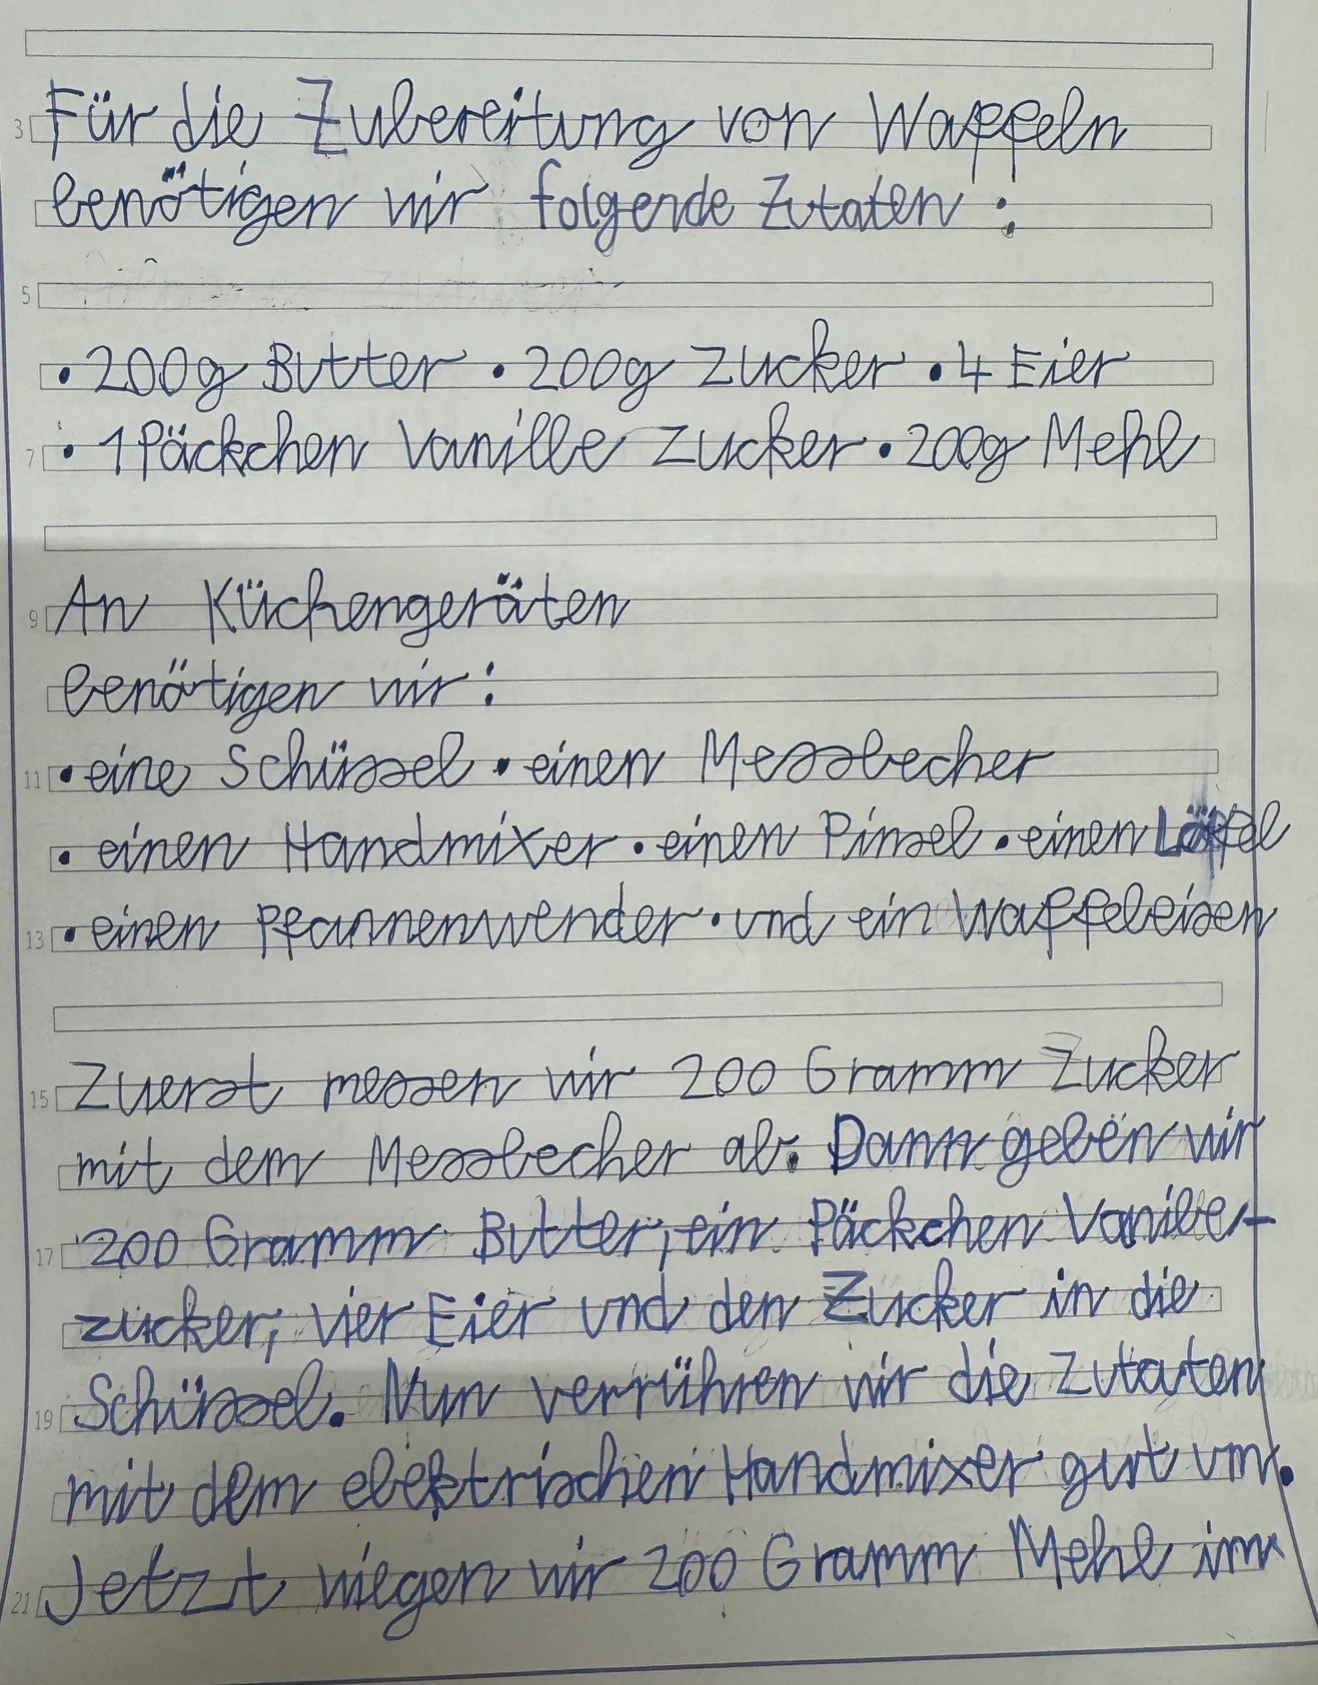 Für die Zubereitung von Waffeln
benötigen wir folgende Zutaten:
• 200g Butter • 200g Zucker • 4 Eier
• 1 Päckchen Vanille Zucker • 200g Mehl
An Küchengeräten
benötigen wir:
• eine Schüssel • einen Messbecher
• einen Handmixer • einen Pinsel • einen Löffel
• einen Pfannenwender • und ein Waffeleisen
Zuerst messen wir 200 Gramm Zucker
mit dem Messbecher ab. Dann geben wir
200 Gramm Butter, ein Päckchen Vanille-
zucker, vier Eier und den Zucker in die
Schüssel. Nun verrühren wir die Zutaten
mit dem elektrischen Handmixer gut um.
Jetzt wiegen wir 200 Gramm Mehl im
3
5
7
9
11
13
15
17
19
21